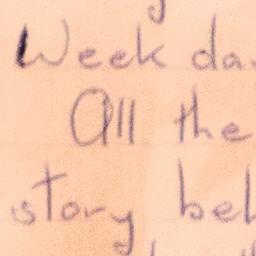 Week da
All the
story bel